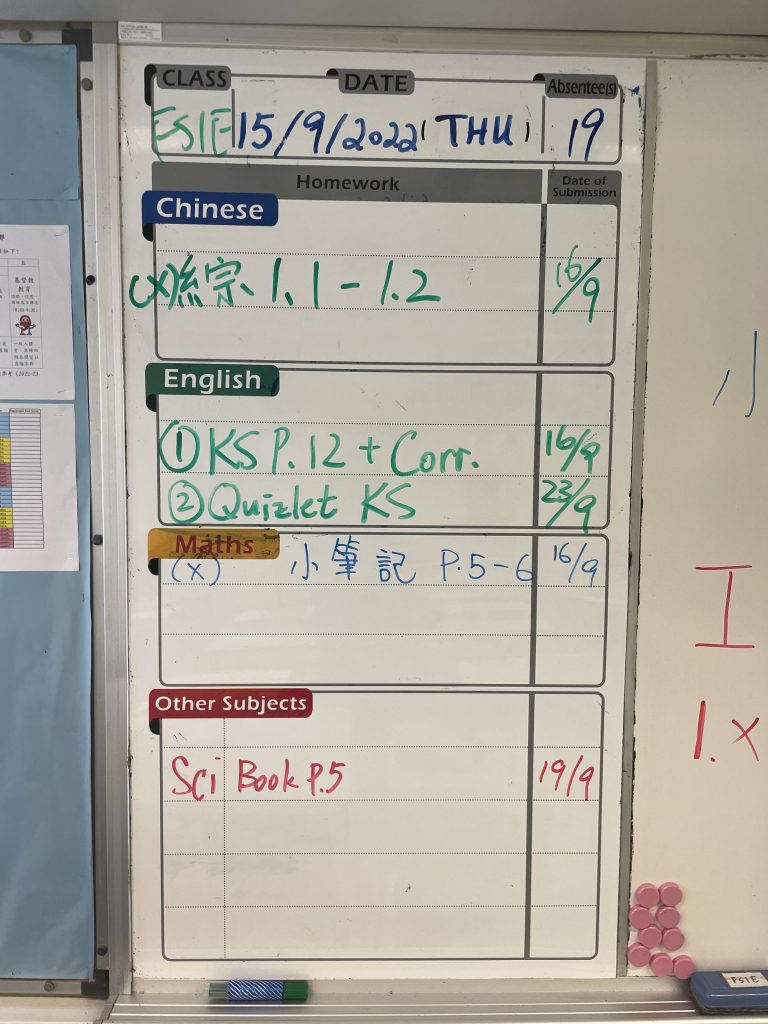 CLASS DATE Absentee(s)
15/9/2022 (THU) 19
Homework Date of Submission
Chinese
(X) 綜 1.1 - 1.2 16/9
English
① KS P.12 + Corr. 16/9
② Quizlet KS 23/9
Maths
(X) 小筆記 P.5-6 16/9
Other Subjects
Sci Book P.5 19/9
基督教
教育
小
工
1. X